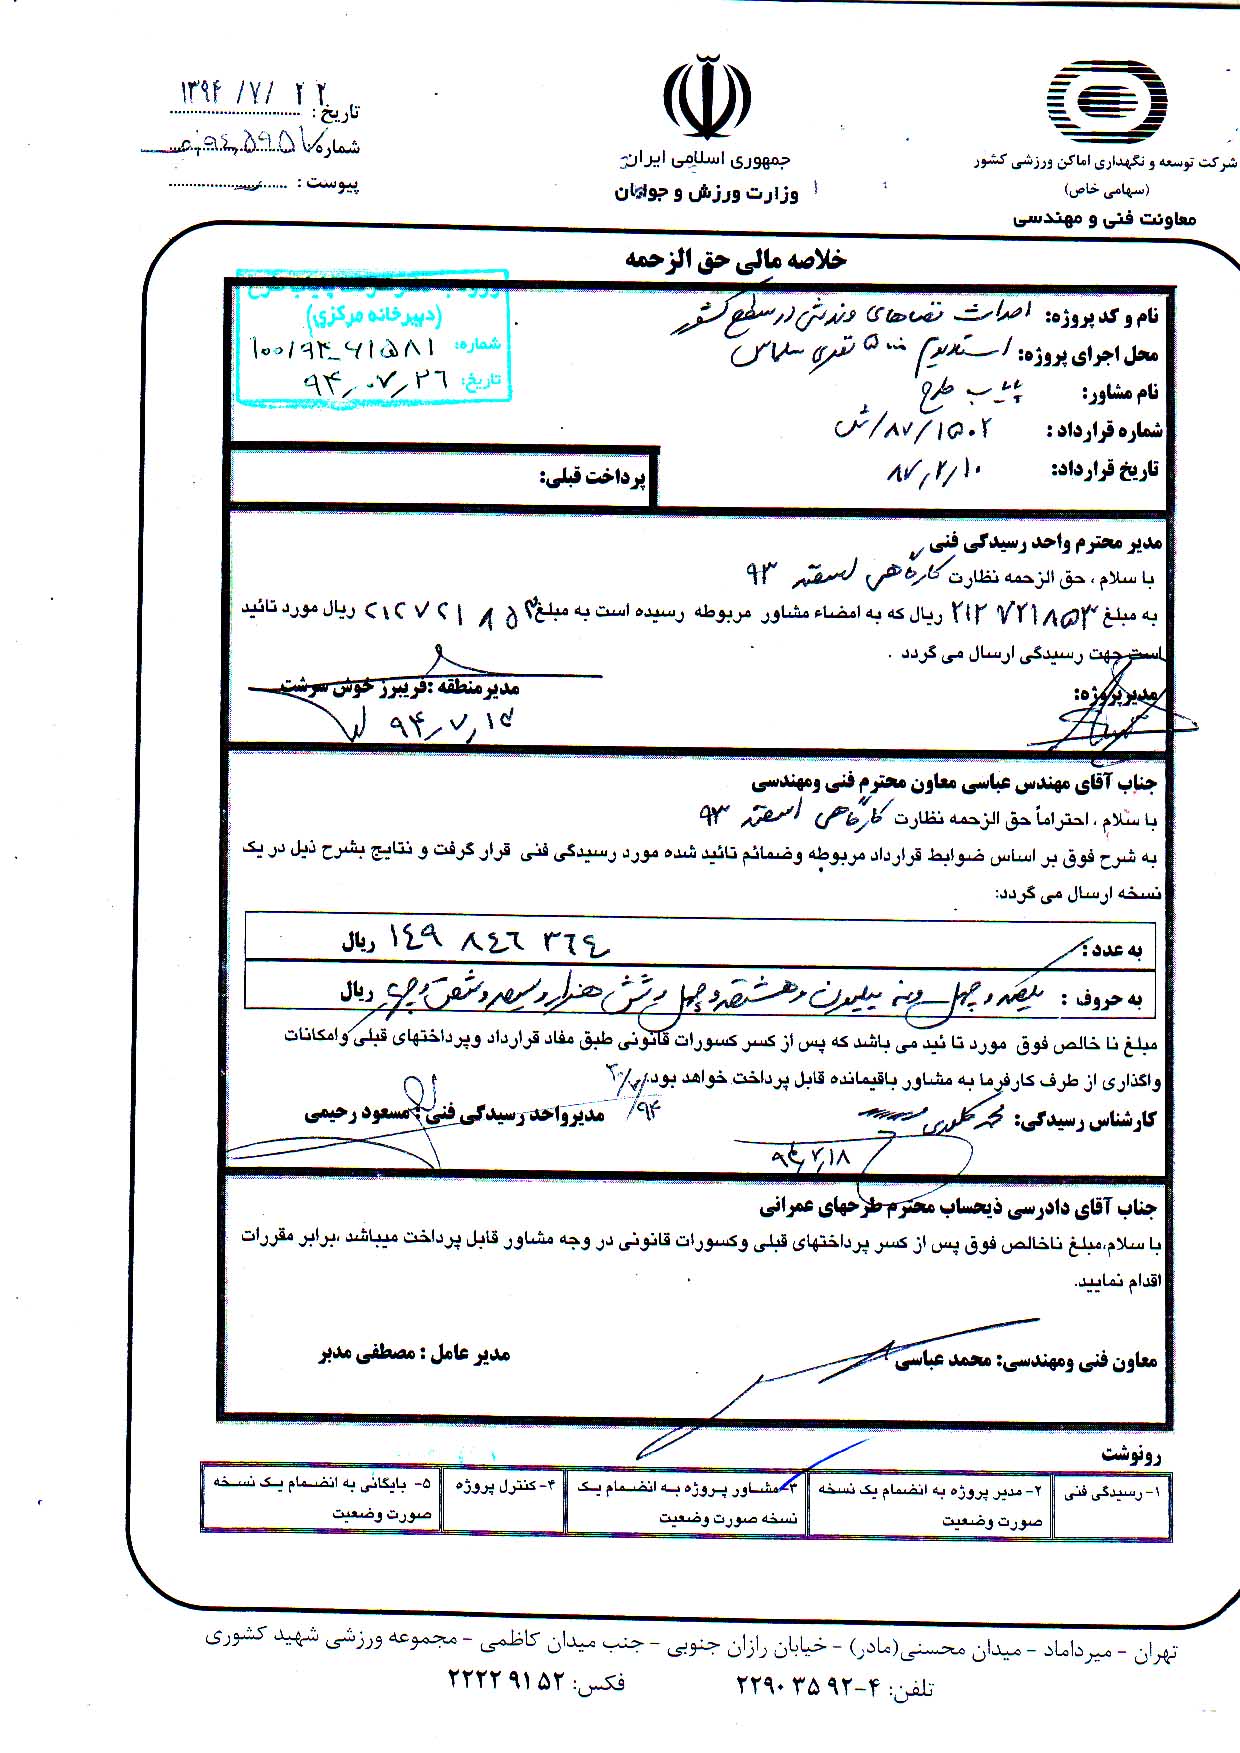 شرکت توسعه و نگهداری اماکن ورزشی کشور
(سهامی خاص)
معاونت فنی و مهندسی
جمهوری اسلامی ایران
وزارت ورزش و جوانان
تاریخ: ۱۳۹۴/۷/۲۲
شماره:
پیوست:
خلاصه مالی حق الزحمه
(دبیرخانه مرکزی)
شماره: ۱۰۰/۹۴-۶۱۵۸۱
تاریخ: ۹۴/۰۷/۲۶
نام و کد پروژه: احداث فضاهای ورزشی در سطح کشور
محل اجرای پروژه: استادیوم ۵۰۰۰ نفری سلماس
نام مشاور: پایاب طرح
شماره قرارداد: ۸۷/۱۵۰۲/ش
تاریخ قرارداد: ۸۷/۲/۱۰
پرداخت قبلی:
مدیر محترم واحد رسیدگی فنی
با سلام ، حق الزحمه نظارت کارگاهی اسفند ۹۳
به مبلغ ۲۱۲۷۲۱۸۵۳ ریال که به امضاء مشاور مربوطه رسیده است به مبلغ ۲۱۲۷۲۱۸۵۳ ریال مورد تائید
است جهت رسیدگی ارسال می گردد .
مدیرپروژه:
مدیرمنطقه :فریبرز خوش سرشت
۹۴/۷/۱۴
جناب آقای مهندس عباسی معاون محترم فنی ومهندسی
با سلام ، احتراماً حق الزحمه نظارت کارگاهی اسفند ۹۳
به شرح فوق بر اساس ضوابط قرارداد مربوطه وضمائم تائید شده مورد رسیدگی فنی قرار گرفت و نتایج بشرح ذیل در یک
نسخه ارسال می گردد:
به عدد : ۱۴۹ ۸۴۶ ۳۶۴ ریال
به حروف : یکصد و چهل و نه میلیون و هشتصد و چهل و شش هزار و سیصد و شصت و چهار ریال
مبلغ نا خالص فوق مورد تا ئید می باشد که پس از کسر کسورات قانونی طبق مفاد قرارداد وپرداختهای قبلی وامکانات
واگذاری از طرف کارفرما به مشاور باقیمانده قابل پرداخت خواهد بود.
کارشناس رسیدگی:
مدیرواحد رسیدگی فنی : مسعود رحیمی
۹۴/۷/۱۸
جناب آقای دادرسی ذیحساب محترم طرحهای عمرانی
با سلام،مبلغ ناخالص فوق پس از کسر پرداختهای قبلی وکسورات قانونی در وجه مشاور قابل پرداخت میباشد ،برابر مقررات
اقدام نمایید.
معاون فنی ومهندسی: محمد عباسی
مدیر عامل : مصطفی مدبر
رونوشت
۱-رسیدگی فنی
۲-مدیر پروژه به انضمام یک نسخه
صورت وضعیت
۳-مشاور پروژه به انضمام یک
نسخه صورت وضعیت
۴-کنترل پروژه
۵- بایگانی به انضمام یک نسخه
صورت وضعیت
تهران - میرداماد - میدان محسنی(مادر) - خیابان رازان جنوبی - جنب میدان کاظمی - مجموعه ورزشی شهید کشوری
تلفن: ۴-۲۲۹۰۳۵۹۲ فکس: ۲۲۲۲۹۱۵۲